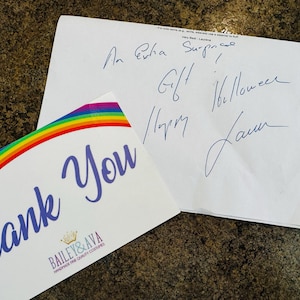 An Extra Surprise
Gift!
Happy Halloween
Laura
ank You
BAILEY&AVA